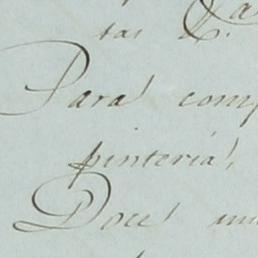 tas
Para comp
pinteria,
Doce